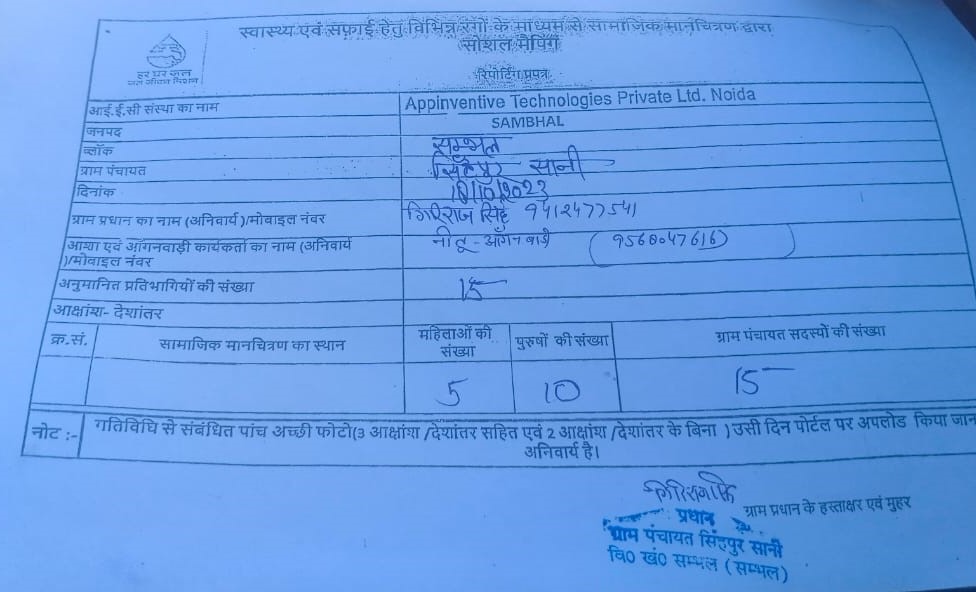 स्वास्थ्य एवं सफ़ाई हेतु विभिन्न रंगों के माध्यम से सामाजिक मानचित्रण द्वारा
सोशल मैपिंग
रिपोर्टिंग प्रपत्र
हर घर जल
जल जीवन मिशन
आई.ई.सी संस्था का नाम Appinventive Technologies Private Ltd. Noida
जनपद SAMBHAL
ब्लॉक सम्भल
ग्राम पंचायत सिंहपुर सानी
दिनांक
ग्राम प्रधान का नाम (अनिवार्य)/मोबाइल नंबर गिरिराज सिंह 9412477541
आशा एवं आँगनवाड़ी कार्यकर्ता का नाम (अनिवार्य नीतू - आँगनबाड़ी (9560047616)
)/मोबाइल नंबर
अनुमानित प्रतिभागियों की संख्या 15
आक्षांश- देशांतर
क्र.सं. सामाजिक मानचित्रण का स्थान महिलाओं की संख्या पुरुषों की संख्या ग्राम पंचायत सदस्यों की संख्या
5 10 15
नोट :- गतिविधि से संबंधित पांच अच्छी फोटो(3 आक्षांश /देशांतर सहित एवं 2 आक्षांश /देशांतर के बिना ) उसी दिन पोर्टल पर अपलोड किया जान
अनिवार्य है।
ग्राम प्रधान के हस्ताक्षर एवं मुहर
प्रधान
ग्राम पंचायत सिंहपुर सानी
वि0 खं0 सम्भल (सम्भल)